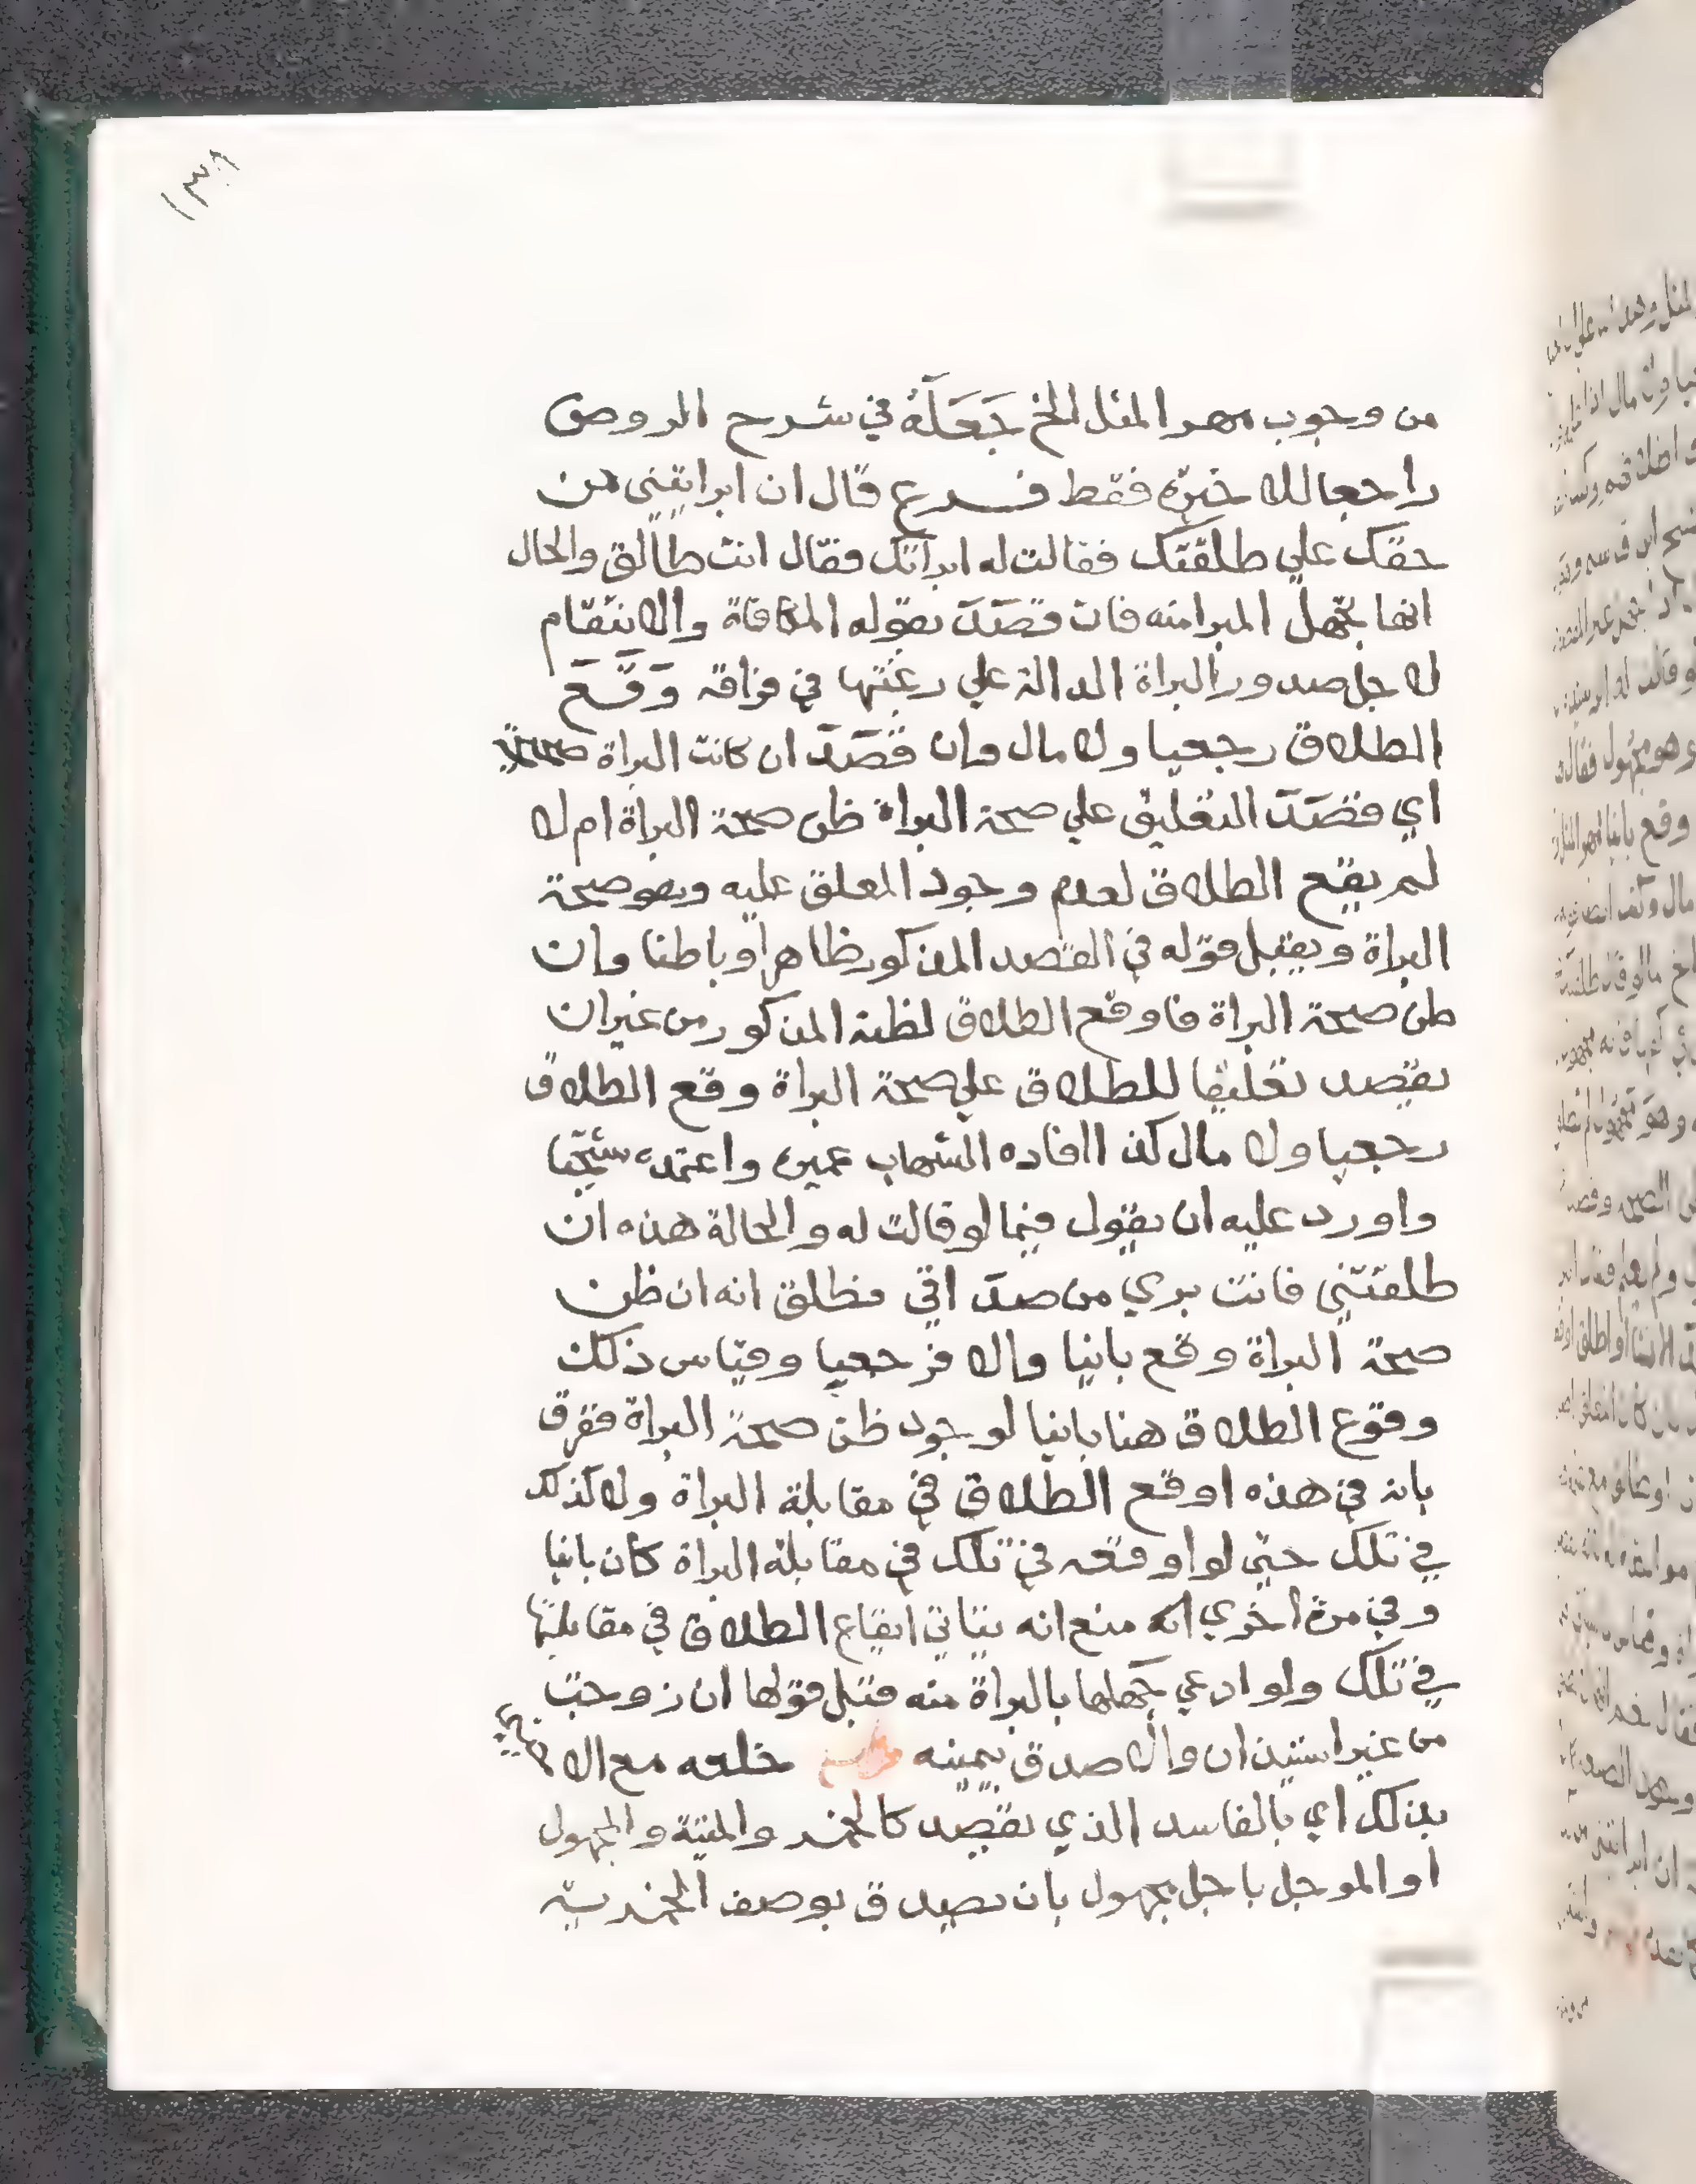 ١٣٩
من وجوب مهر المثل الخ جَعَلَهُ في شرح الروض
راجعا للاخيرة فقط فرع قال ان ابراتيني من
حقك علي طلقتك فقالت له ابراتك فقال انت طالق والحال
انها تجهل المبرا منه فان قصَدَ بقوله المكافاة والانتقام
لاجل صدور البراة الدالة علي رغبتها في فراقه وَقَعَ
الطلاق رجعيا ولا مال وان قَصَدَ ان كانت البراة صحيحة
اي قصَدَ التعليق علي صحة البراة ظن صحة البراة ام لا
لم يقع الطلاق لعدم وجود المعلق عليه وهو صحة
البراة ويقبل قوله في القصد المذكور ظاهرا وباطنا وان
ظن صحة البراة فاوقع الطلاق لظنه المذكور من غير ان
يقصد تعليقا للطلاق علي صحة البراة وقع الطلاق
رجعيا ولا مال كذا افاده الشهاب عميره واعتمده شيخنا
واورد عليه ان يقول فيما لو قالت له والحالة هذه ان
طلقتني فانت بري من صداقي فطلق انه ان ظن
صحة البراة وقع باينا والا فرجعيا وقياس ذلك
وقوع الطلاق هنا باينا لوجود ظن صحة البراة ففرق
بانه في هذه اوقع الطلاق في مقابلة البراة ولا كذلك
في تلك حتي لو اوقعه في تلك في مقابلة البراة كان باينا
وفي مرة اخري انه منع انه يتاتي ايقاع الطلاق في مقابلتها
في تلك ولو ادعي جهلها بالبراة منه قبل قولها ان زوجت
من غير استيذان والا صدق بيمينه خلعه مع الا
بذلك اي بالفاسد الذي يقصد كالخمر والميتة والمجهول
او الموجل باجل مجهول بان يصدق بوصف الخمرية